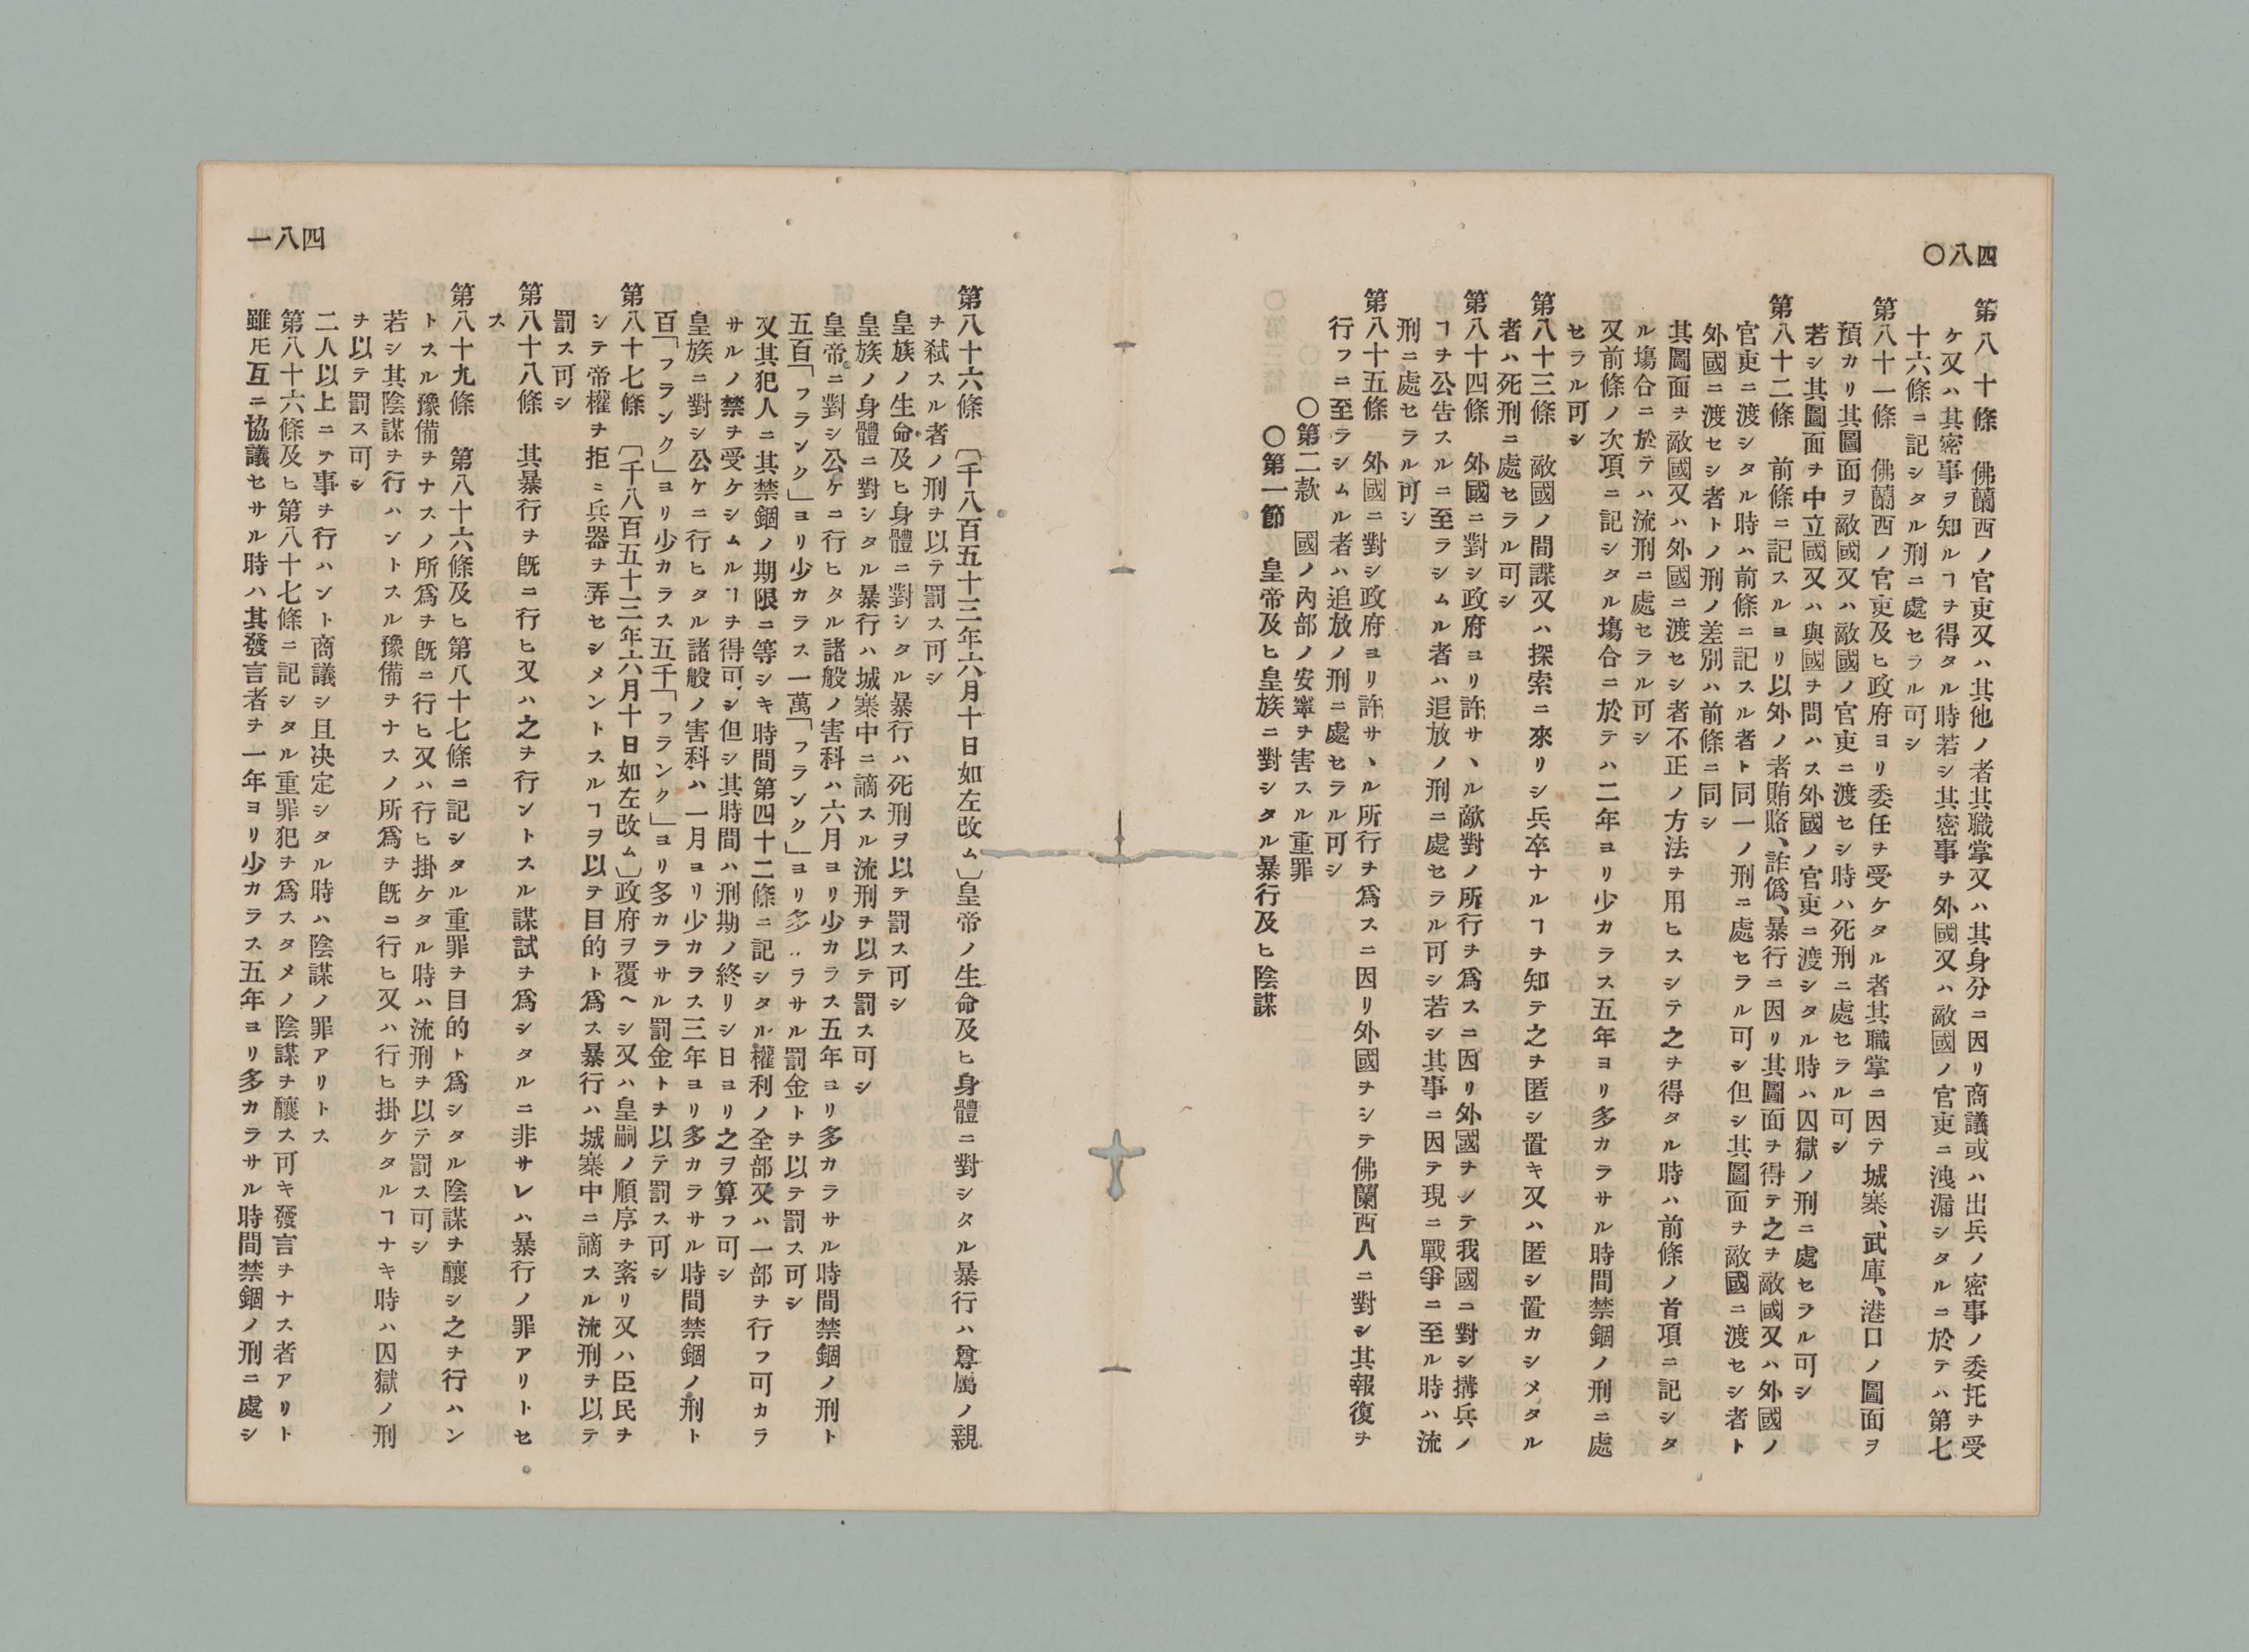 四八〇
第八十條　佛蘭西ノ官吏又ハ其他ノ者其職掌又ハ其身分ニ因リ商議或ハ出兵ノ密事ノ委托ヲ受
ケ又ハ其密事ヲ知ルヿヲ得タル時若シ其密事ヲ外國又ハ敵國ノ官吏ニ洩漏シタルニ於テハ第七
十六條ニ記シタル刑ニ處セラル可シ
第八十一條　佛蘭西ノ官吏及ヒ政府ヨリ委任ヲ受ケタル者其職掌ニ因テ城寨、武庫、港口ノ圖面ヲ
預カリ其圖面ヲ敵國又ハ敵國ノ官吏ニ渡セシ時ハ死刑ニ處セラル可シ
若シ其圖面ヲ中立國又ハ與國ヲ問ハス外國ノ官吏ニ渡シタル時ハ囚獄ノ刑ニ處セラル可シ
第八十二條　前條ニ記スルヨリ以外ノ者賄賂、詐僞、暴行ニ因リ其圖面ヲ得テ之ヲ敵國又ハ外國ノ
官吏ニ渡シタル時ハ前條ニ記スル者ト同一ノ刑ニ處セラル可シ但シ其圖面ヲ敵國ニ渡セシ者ト
外國ニ渡セシ者トノ刑ノ差別ハ前條ニ同シ
其圖面ヲ敵國又ハ外國ニ渡セシ者不正ノ方法ヲ用ヒスシテ之ヲ得タル時ハ前條ノ首項ニ記シタ
ル塲合ニ於テハ流刑ニ處セラル可シ
又前條ノ次項ニ記シタル塲合ニ於テハ二年ヨリ少カラス五年ヨリ多カラサル時間禁錮ノ刑ニ處
セラル可シ
第八十三條　敵國ノ間諜又ハ探索ニ來リシ兵卒ナルヿヲ知テ之ヲ匿シ置キ又ハ匿シ置カシメタル
者ハ死刑ニ處セラル可シ
第八十四條　外國ニ對シ政府ヨリ許サヽル敵對ノ所行ヲ爲スニ因リ外國ヲシテ我國ニ對シ搆兵ノ
ヿヲ公告スルニ至ラシムル者ハ追放ノ刑ニ處セラル可シ若シ其事ニ因テ現ニ戰爭ニ至ル時ハ流
刑ニ處セラル可シ
第八十五條　外國ニ對シ政府ヨリ許サヽル所行ヲ爲スニ因リ外國ヲシテ佛蘭西人ニ對シ其報復ヲ
行フニ至ラシムル者ハ追放ノ刑ニ處セラル可シ
〇第二款　國ノ內部ノ安寧ヲ害スル重罪
〇第一節　皇帝及ヒ皇族ニ對シタル暴行及ヒ陰謀
四八一
第八十六條　〔千八百五十三年六月十日如左改ム〕皇帝ノ生命及ヒ身體ニ對シタル暴行ハ尊屬ノ親
ヲ弑スル者ノ刑ヲ以テ罰ス可シ
皇族ノ生命及ヒ身體ニ對シタル暴行ハ死刑ヲ以テ罰ス可シ
皇族ノ身體ニ對シタル暴行ハ城寨中ニ謫スル流刑ヲ以テ罰ス可シ
皇帝ニ對シ公ケニ行ヒタル諸般ノ害科ハ六月ヨリ少カラス五年ヨリ多カラサル時間禁錮ノ刑ト
五百「フランク」ヨリ少カラス一萬「フランク」ヨリ多ラサル罰金トヲ以テ罰ス可シ
又其犯人ニ其禁錮ノ期限ニ等シキ時間第四十二條ニ記シタル權利ノ全部又ハ一部ヲ行フ可カラ
サルノ禁ヲ受ケシムルヿヲ得可シ但シ其時間ハ刑期ノ終リシ日ヨリ之ヲ算フ可シ
皇族ニ對シ公ケニ行ヒタル諸般ノ害科ハ一月ヨリ少カラス三年ヨリ多カラサル時間禁錮ノ刑ト
百「フランク」ヨリ少カラス五千「フランク」ヨリ多カラサル罰金トヲ以テ罰ス可シ
第八十七條　〔千八百五十三年六月十日如左改ム〕政府ヲ覆ヘシ又ハ皇嗣ノ順序ヲ紊リ又ハ臣民ヲ
シテ帝權ヲ拒ミ兵器ヲ弄セシメントスルヿヲ以テ目的ト爲ス暴行ハ城寨中ニ謫スル流刑ヲ以テ
罰ス可シ
第八十八條　其暴行ヲ旣ニ行ヒ又ハ之ヲ行ントスル謀試ヲ爲シタルニ非サレハ暴行ノ罪アリトセ
ス
第八十九條　第八十六條及ヒ第八十七條ニ記シタル重罪ヲ目的ト爲シタル陰謀ヲ釀シ之ヲ行ハン
トスル豫備ヲナスノ所爲ヲ旣ニ行ヒ又ハ行ヒ掛ケタル時ハ流刑ヲ以テ罰ス可シ
若シ其陰謀ヲ行ハントスル豫備ヲナスノ所爲ヲ旣ニ行ヒ又ハ行ヒ掛ケタルヿナキ時ハ囚獄ノ刑
ヲ以テ罰ス可シ
二人以上ニテ事ヲ行ハント商議シ且决定シタル時ハ陰謀ノ罪アリトス
第八十六條及ヒ第八十七條ニ記シタル重罪犯ヲ爲スタメノ陰謀ヲ釀ス可キ發言ヲナス者アリト
雖𪜈互ニ協議セサル時ハ其發言者ヲ一年ヨリ少カラス五年ヨリ多カラサル時間禁錮ノ刑ニ處シ